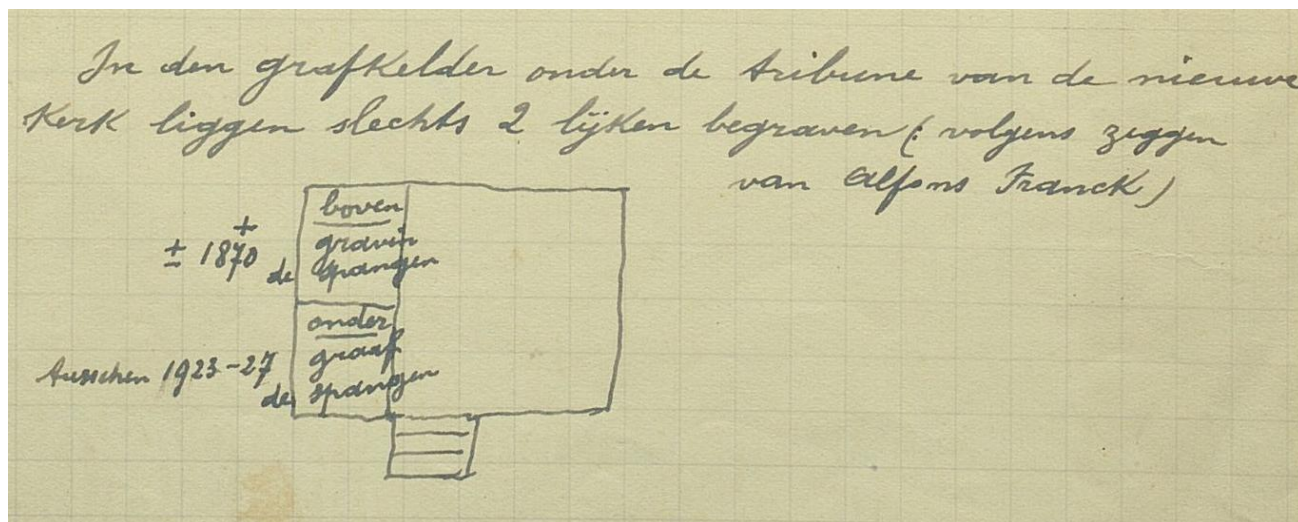 In den grafkelder onder de tribune van de nieuwe
Kerk liggen slechts 2 lijken begraven (: volgens zeggen
van Alfons Franck)
boven
+
± 1870
gravin
de Spangen
onder
graaf
Tusschen 1923-27
de Spangen